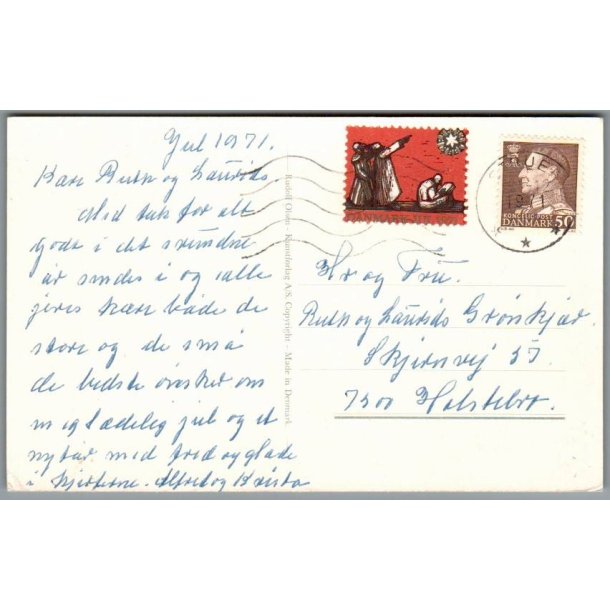 Jul 1971.
Kære Ruth og Laurids.
Med tak for alt
godt i det svundne
år sendes i og alle
jeres kære både de
store og de små
de bedste ønsker om
en glædelig jul og et
nytår med fred og glæde
i hjerterne. Alfred og Krista
Rudolf Olsen - Kunstforlag A/S. Copyright - Made in Denmark
DANMARK JUL
KONGELIG POST
DANMARK 50
Hr og Fru.
Ruth og Laurids Grønkjær.
Skjernvej 57
7500 Holstebro.